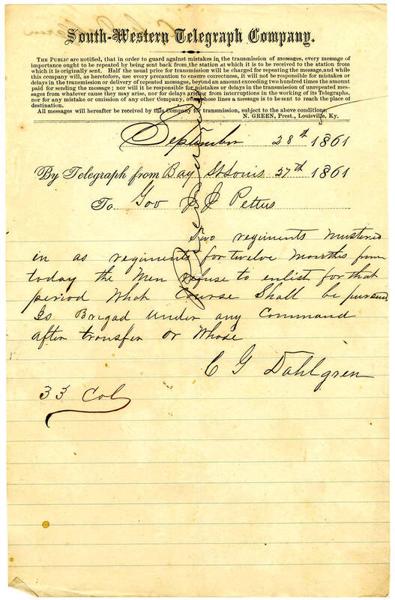 South-Western Telegraph Company.
THE PUBLIC are notified, that in order to guard against mistakes in the transmission of messages, every message of
importance ought to be repeated by being sent back from the station at which it is to be received to the station from
which it is originally sent. Half the usual price for transmission will be charged for repeating the message, and while
this company will, as heretofore, use every precaution to ensure correctness, it will not be responsible for mistakes or
delays in the transmission or delivery of repeated messages, beyond an amount exceeding two hundred times the amount
paid for sending the message; nor will it be responsible for mistakes or delays in the transmission of unrepeated messages
from whatever cause they may arise, nor for delays arising from interruptions in the working of its Telegraphs,
nor for any mistake or omission of any other Company, over whose lines a message is to be sent to reach the place of
destination.
All messages will hereafter be received by this company for transmission, subject to the above conditions.
N. GREEN, Prest., Louisville, Ky.
September 28th 1861
By Telegraph from Bay St Louis 27th 1861
To Gov J J Pettus
Two regiments mustered
in as regiments for twelve months from
today the men refuse to enlist for that
period What Course Shall be pursued
Is Brigad under any Command
after transfer or whose
C G Dahlgren
33 Col